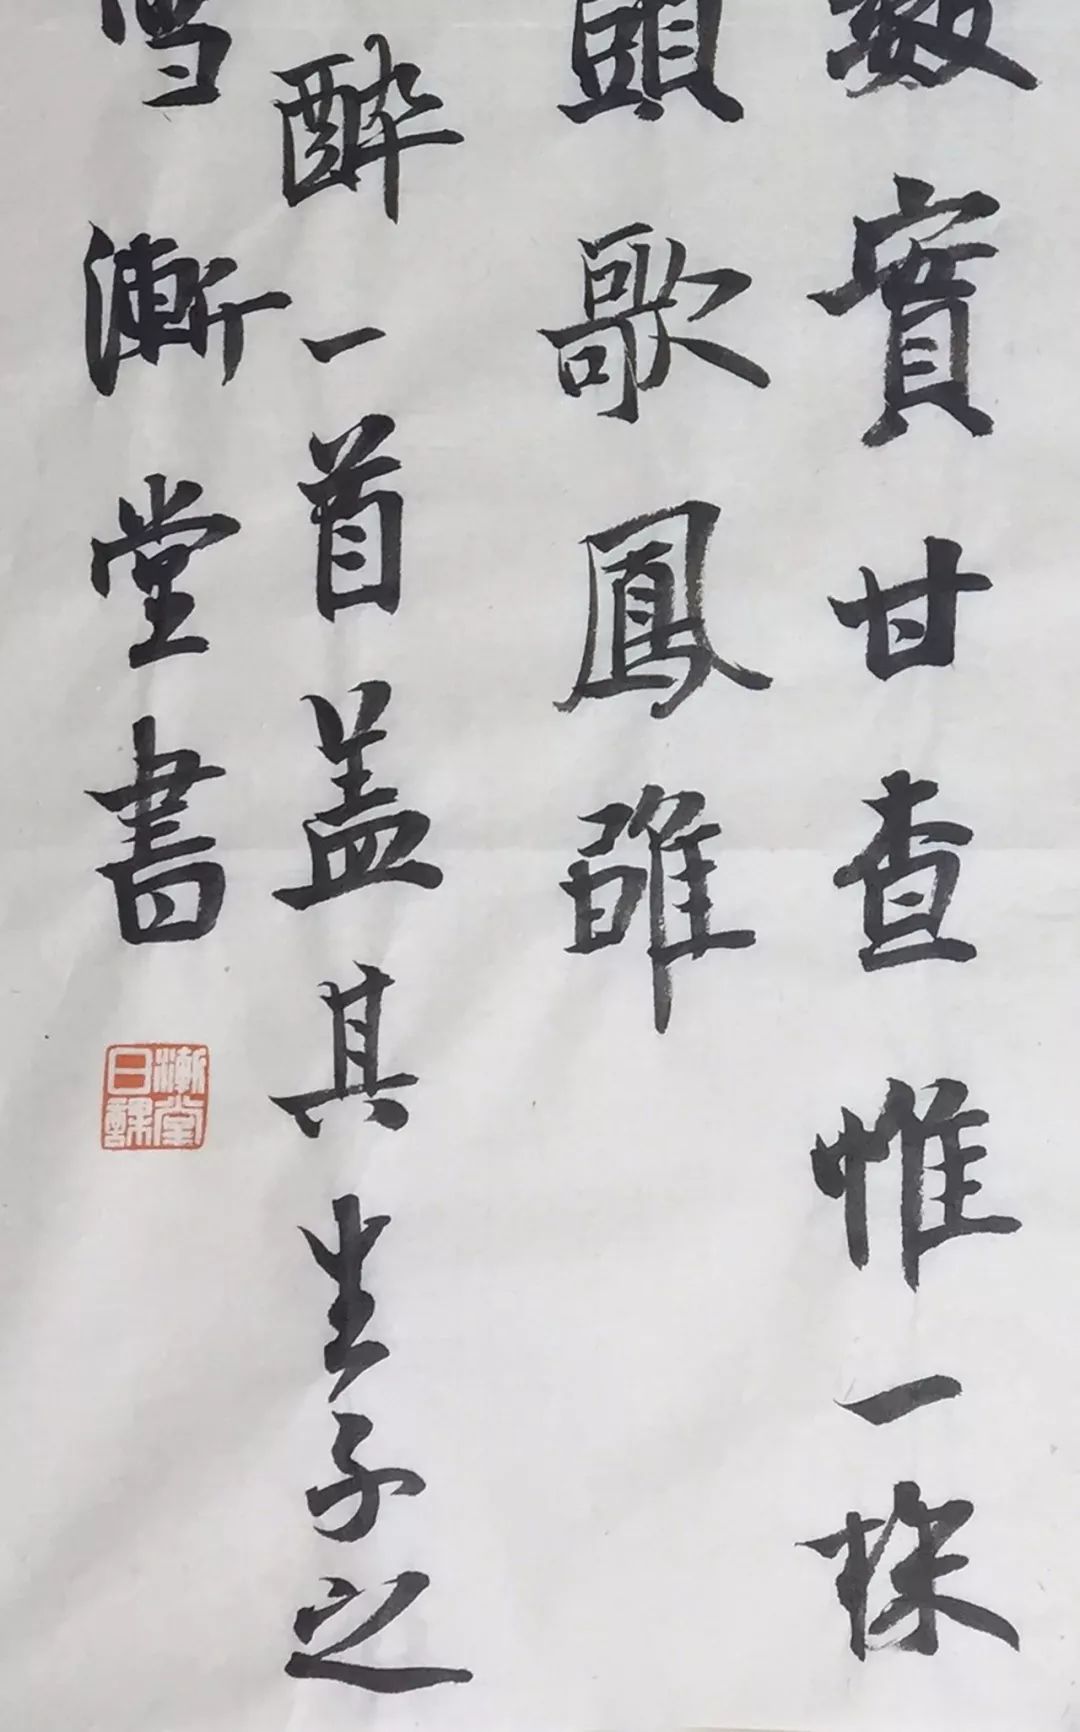 實甘查惟一探
頭歌鳳雛
醉一首盖其生子之
漸堂書
漸堂日課